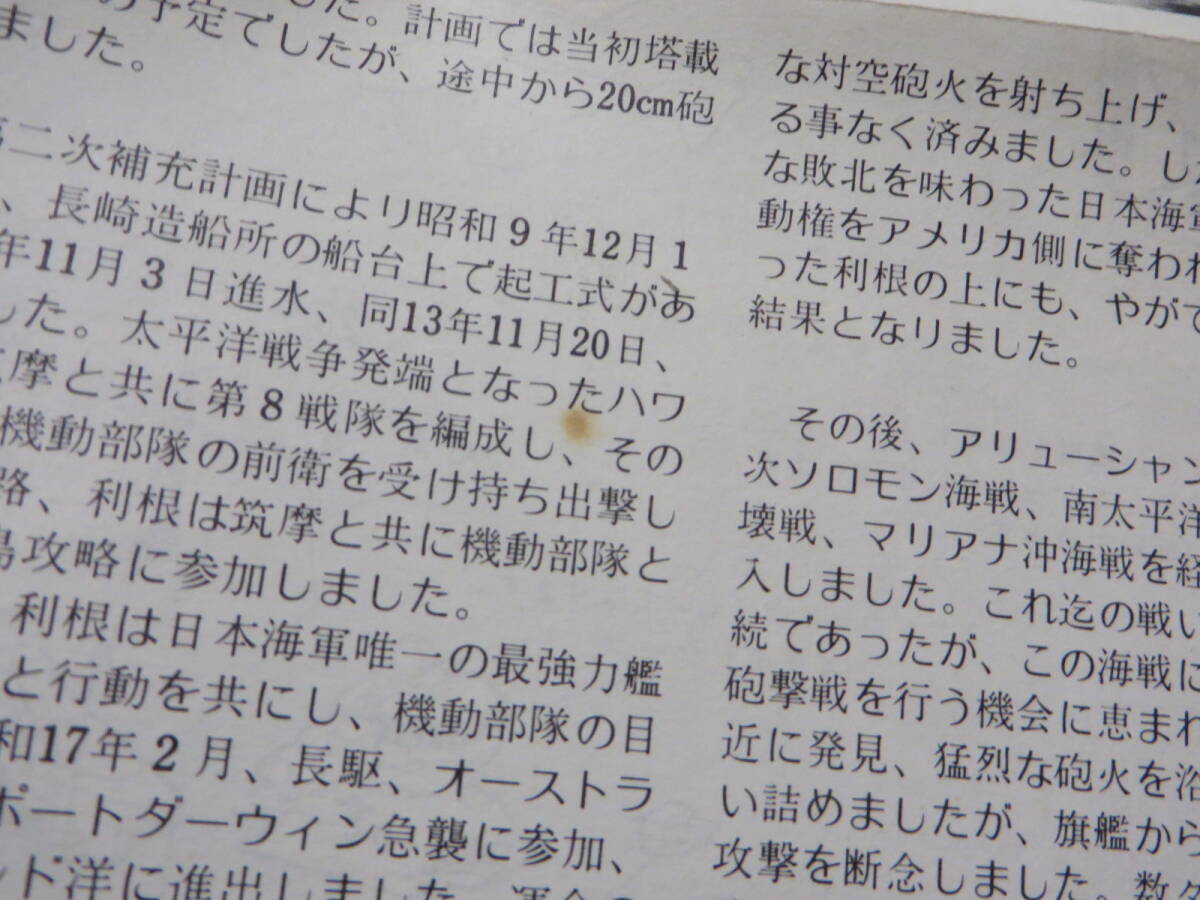 の予定でしたが、途中から20cm砲
した。計画では当初塔載
ました。
二次補充計画により昭和9年12月1
、長崎造船所の船台上で起工式があ
年11月3日進水、同13年11月20日、
した。太平洋戦争発端となったハワ
摩と共に第8戦隊を編成し、その
機動部隊の前衛を受け持ち出撃し
路、利根は筑摩と共に機動部隊と
島攻略に参加しました。
利根は日本海軍唯一の最強力艦
と行動を共にし、機動部隊の目
和17年2月、長駆、オーストラ
ポートダーウィン急襲に参加、
ンド洋に進出しました
な対空砲火を射ち上げ、
る事なく済みました。しか
な敗北を味わった日本海軍
動権をアメリカ側に奪われ
った利根の上にも、やがて
結果となりました。
その後、アリューシャン
次ソロモン海戦、南太平洋
壊戦、マリアナ沖海戦を経
入しました。これ迄の戦い
続であったが、この海戦に
砲撃戦を行う機会に恵まれ
近に発見、猛烈な砲火を浴
い詰めましたが、旗艦から
攻撃を断念しました。数